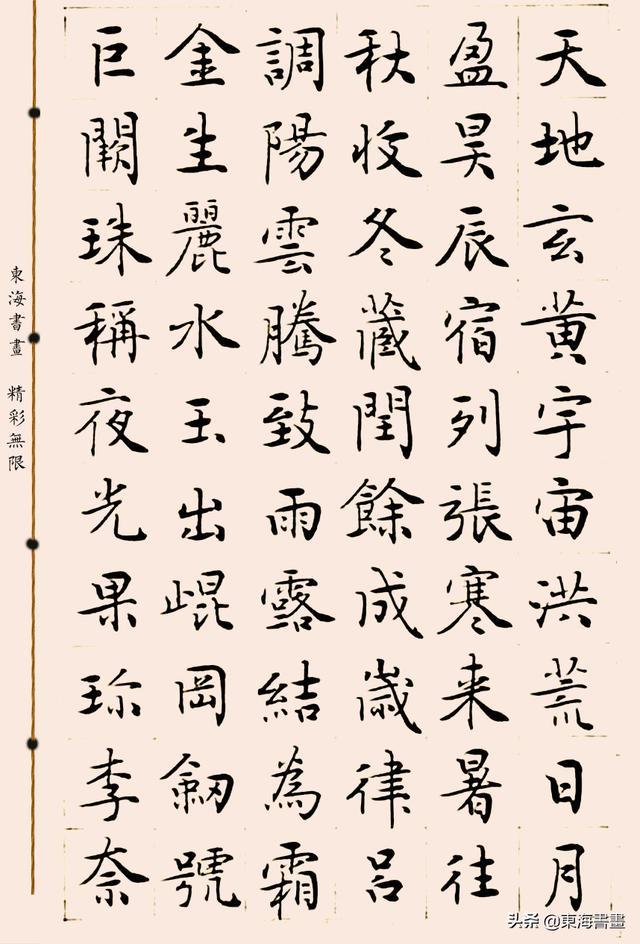 天地玄黃宇宙洪荒日月
盈昃辰宿列張寒来暑往
秋收冬藏閏餘成歲律呂
調陽雲騰致雨露結為霜
金生麗水玉出崐岡劔號
巨闕珠稱夜光果珎李奈
東海書畫 精彩無限
头条 @東海書畫